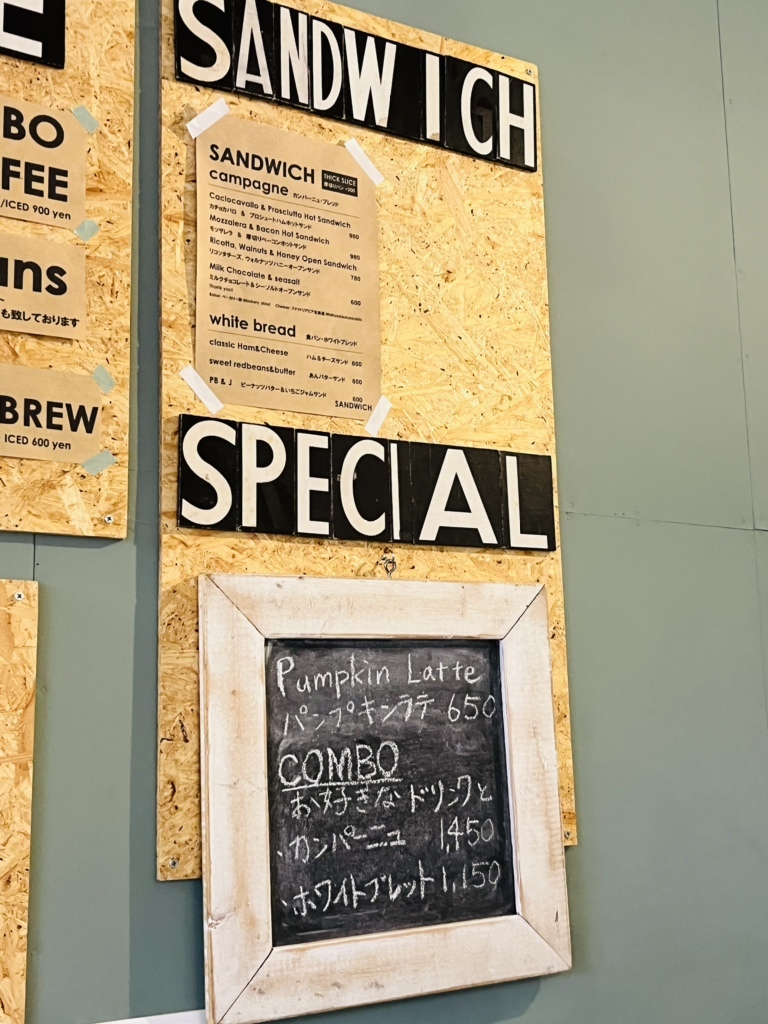 E
BO
FEE
/ICED 900 yen
ans
も致しております
BREW
ICED 600 yen
SANDWICH
SANDWICH THICK SLICE
厚切りパン +200
campagne カンパーニュ・ブレッド
Caciocavallo & Prosciutto Hot Sandwich
カチョカバロ & プロシュートハムホットサンド 980
Mozzalera & Bacon Hot Sandwich
モッザレラ & 厚切りベーコンホットサンド 980
Ricotta, Walnuts & Honey Open Sandwich
リコッタチーズ、ウォルナッツハニーオープンサンド 780
Milk Chocolate & seasalt
ミルクチョコレート&シーソルトオープンサンド 600
thank you!
white bread 食パン・ホワイトブレッド
classic Ham&Cheese ハム&チーズサンド 600
sweet redbeans&butter あんバターサンド 600
PB & J ピーナッツバター&いちごジャムサンド 600
SANDWICH
SPECIAL
Pumpkin Latte
パンプキンラテ 650
COMBO
お好きなドリンクと
・カンパーニュ 1,450
・ホワイトブレッド 1,150